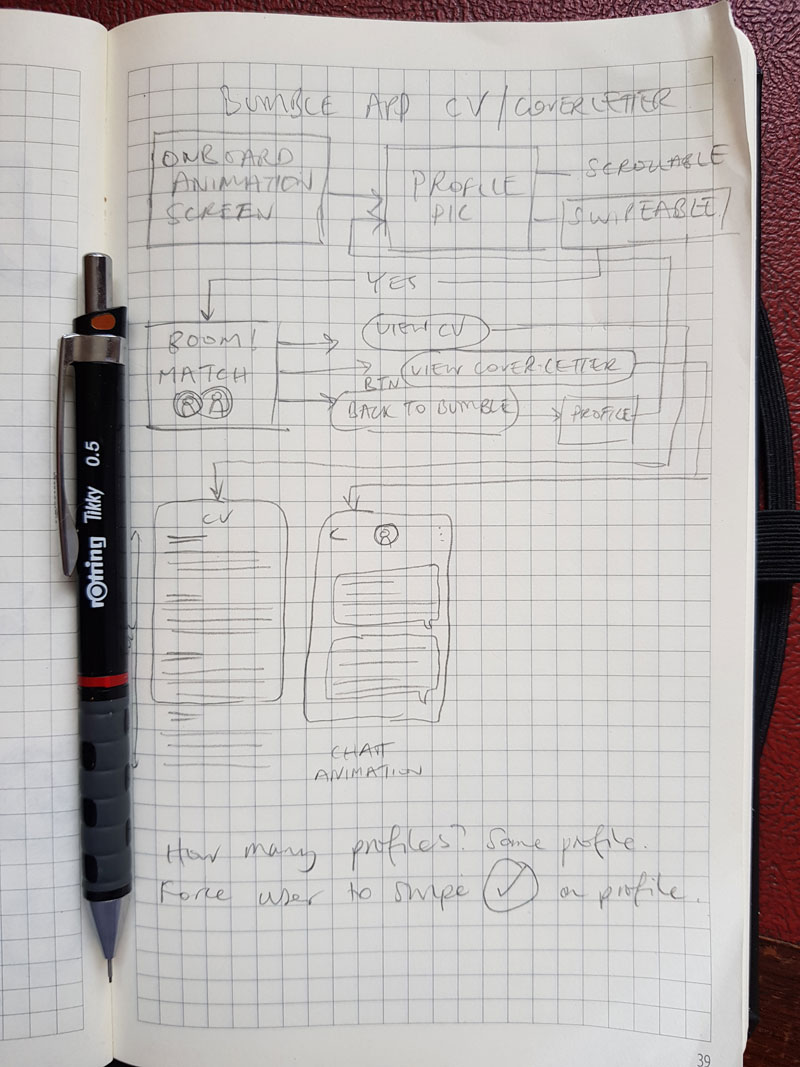 BUMBLE APP CV/COVERLETTER
ONBOARD
ANIMATION
SCREEN
PROFILE
PIC
SCROLLABLE
SWIPEABLE
YES
BOOM!
MATCH
VIEW CV
BTN
VIEW COVER-LETTER
BACK TO BUMBLE
PROFILE
CV
CHAT
ANIMATION
How many profiles? Same profile.
Force user to swipe ✓ on profile.
rotring Tikky 0.5
39